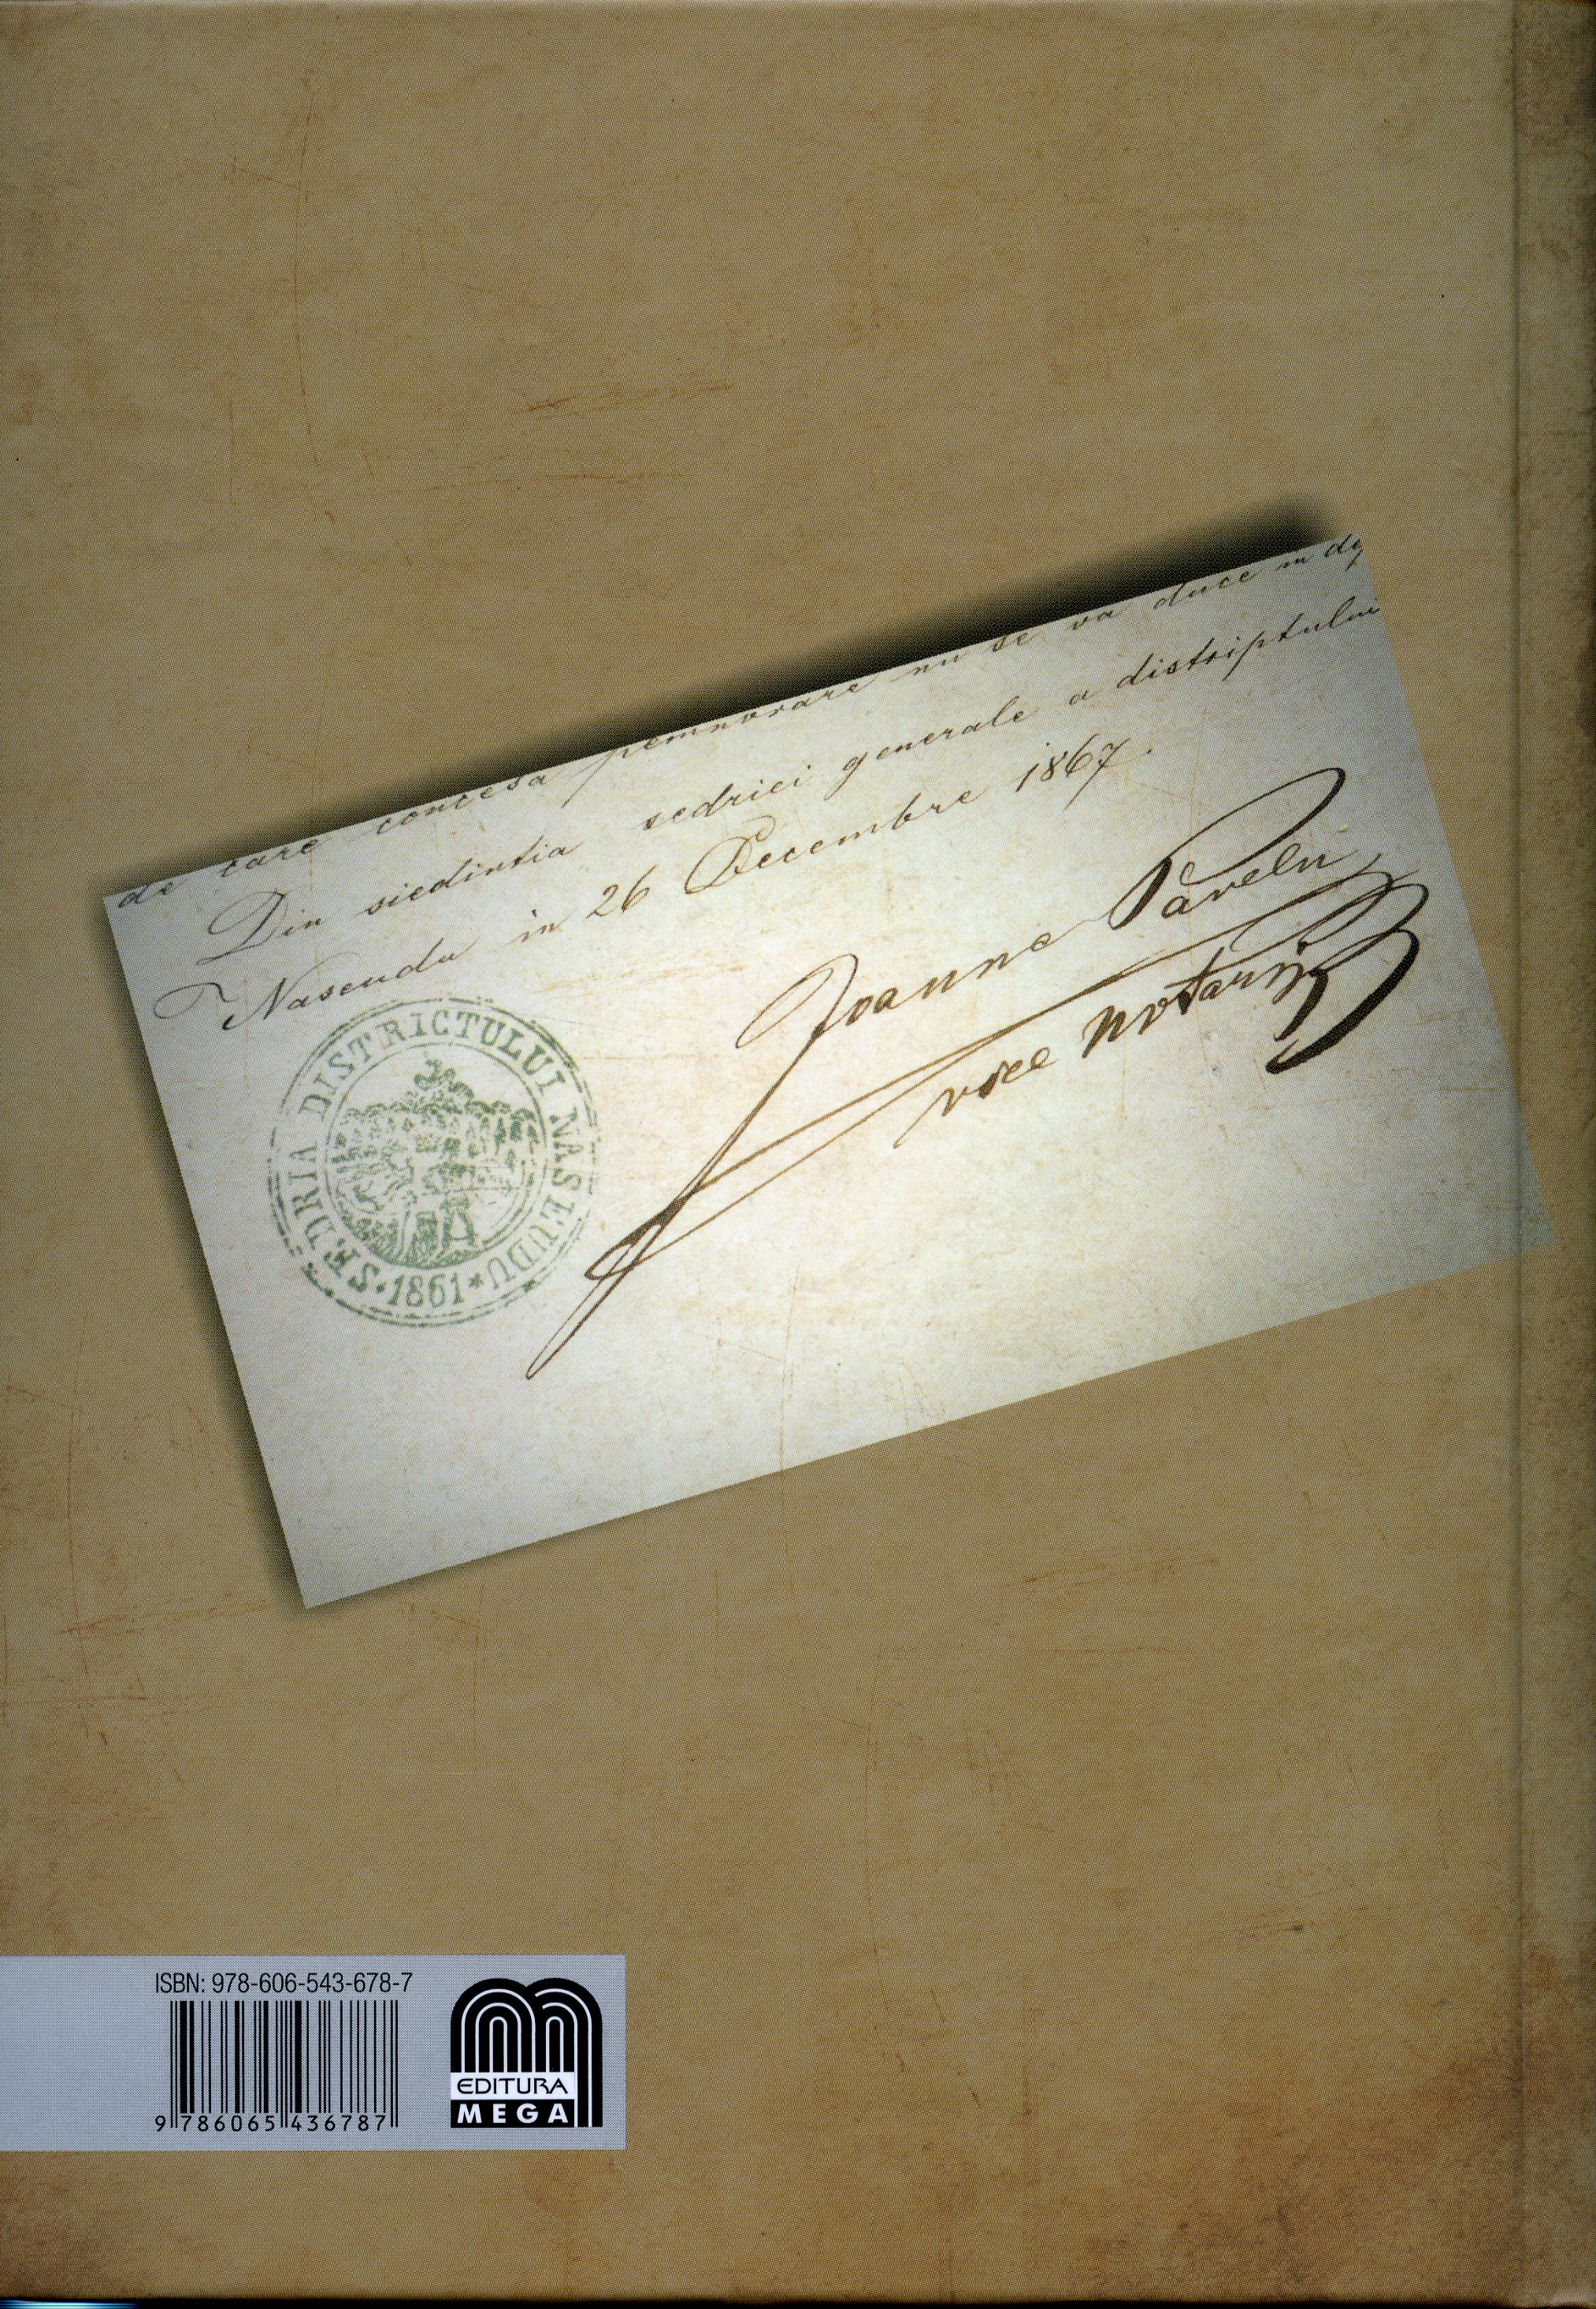 de care concesa pemnorare nu se va duce in
Din siedintia sedriei generale a distriptului
Naseudu in 26 Decembre 1867.
Joanne Pavelu
vice notariu
SEDRIA DISTRICTULUI NASEUDU
1861
ISBN: 978-606-543-678-7
9 786065 436787
EDITURA
MEGA